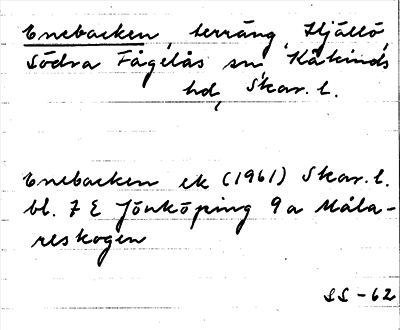 Enebacken, terräng, Hjällö,
Södra Fågelås sn, Kåkinds
hd, Skar. l.
Enebacken ek (1961) Skar. l.
bl. 7 E Jönköping 9 a Måla-
reskogen
SS -62